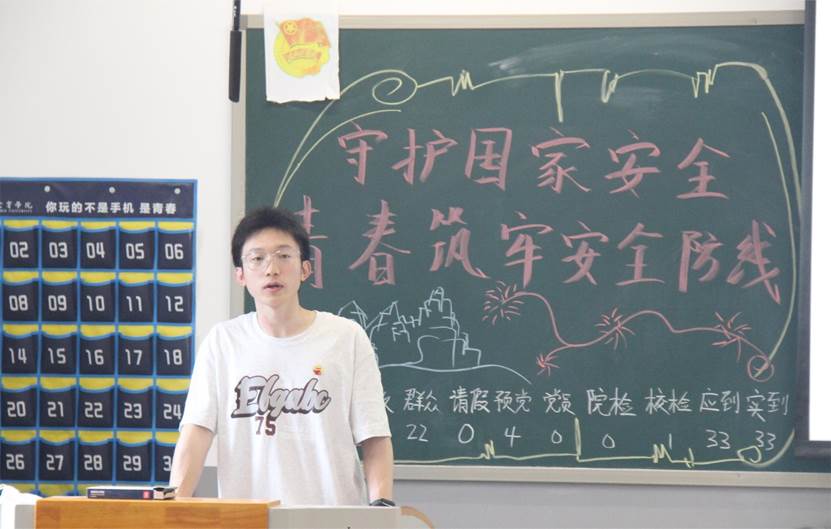 守护国家安全
青春筑牢安全防线
群众 请假 预党 党员 院检 校检 应到 实到
22 0 4 0 0 1 33 33
育学院
你玩的不是手机 是青春
02 03 04 05 06
08 09 10 11 12
14 15 16 17 18
20 21 22 23 24
26 27 28 29 3
Ebgabc
75